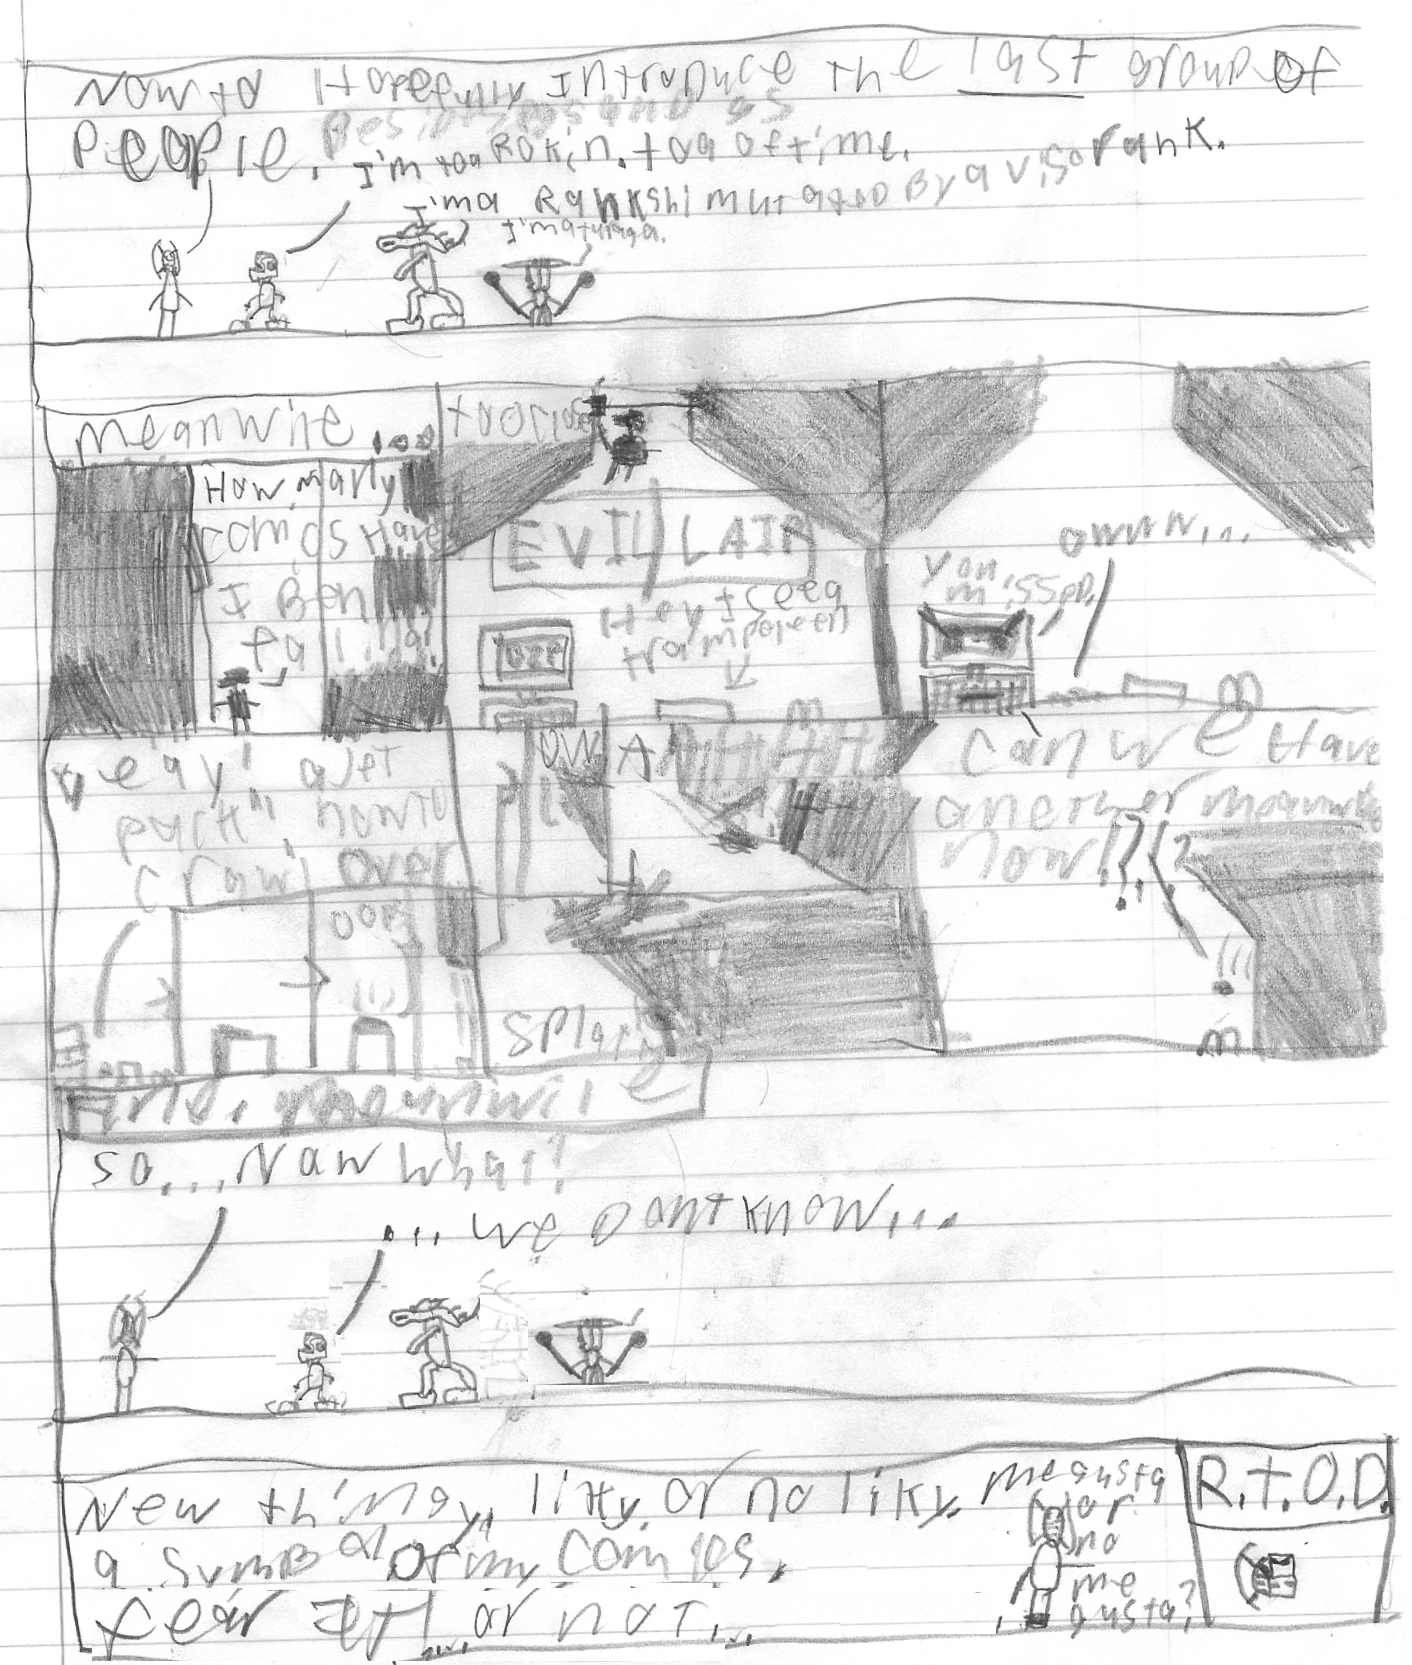 Now to Hopefully Introduce the last group of
People.
I'm toa Rokin. toa of time.
I'm a Rahkshi mutated By a visorank.
I'm a turaga.
meanwile...
How many
comics Have
I Ben
fall.ng!
EVIL LAIR
Hey I see a
trampoleen
You
missed.
owww...
eay! a Jet
pack!! now to
crawl over
ow
Can we Have
another meanwile
Now!?!?
Splat
And, meanwile
So... Now what?
... we Dont know...
New thingy, liky or no liky.
a symbol of my comics.
fear It! ...or not...
me gusta
or
no
me
gusta?
R.t.O.D.